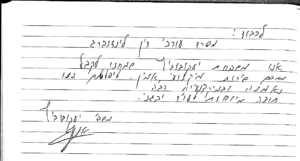 לכבוד:
משרד עורכי דין לינדנברג
אנו משפחת יעקובוביץ' שמחנו לקבל
מכם שירות מקצועי, אמין,
נאמנה ובמקצועיות רבה
תודה מיוחדת לעו"ד
משפ' יעקובוביץ'